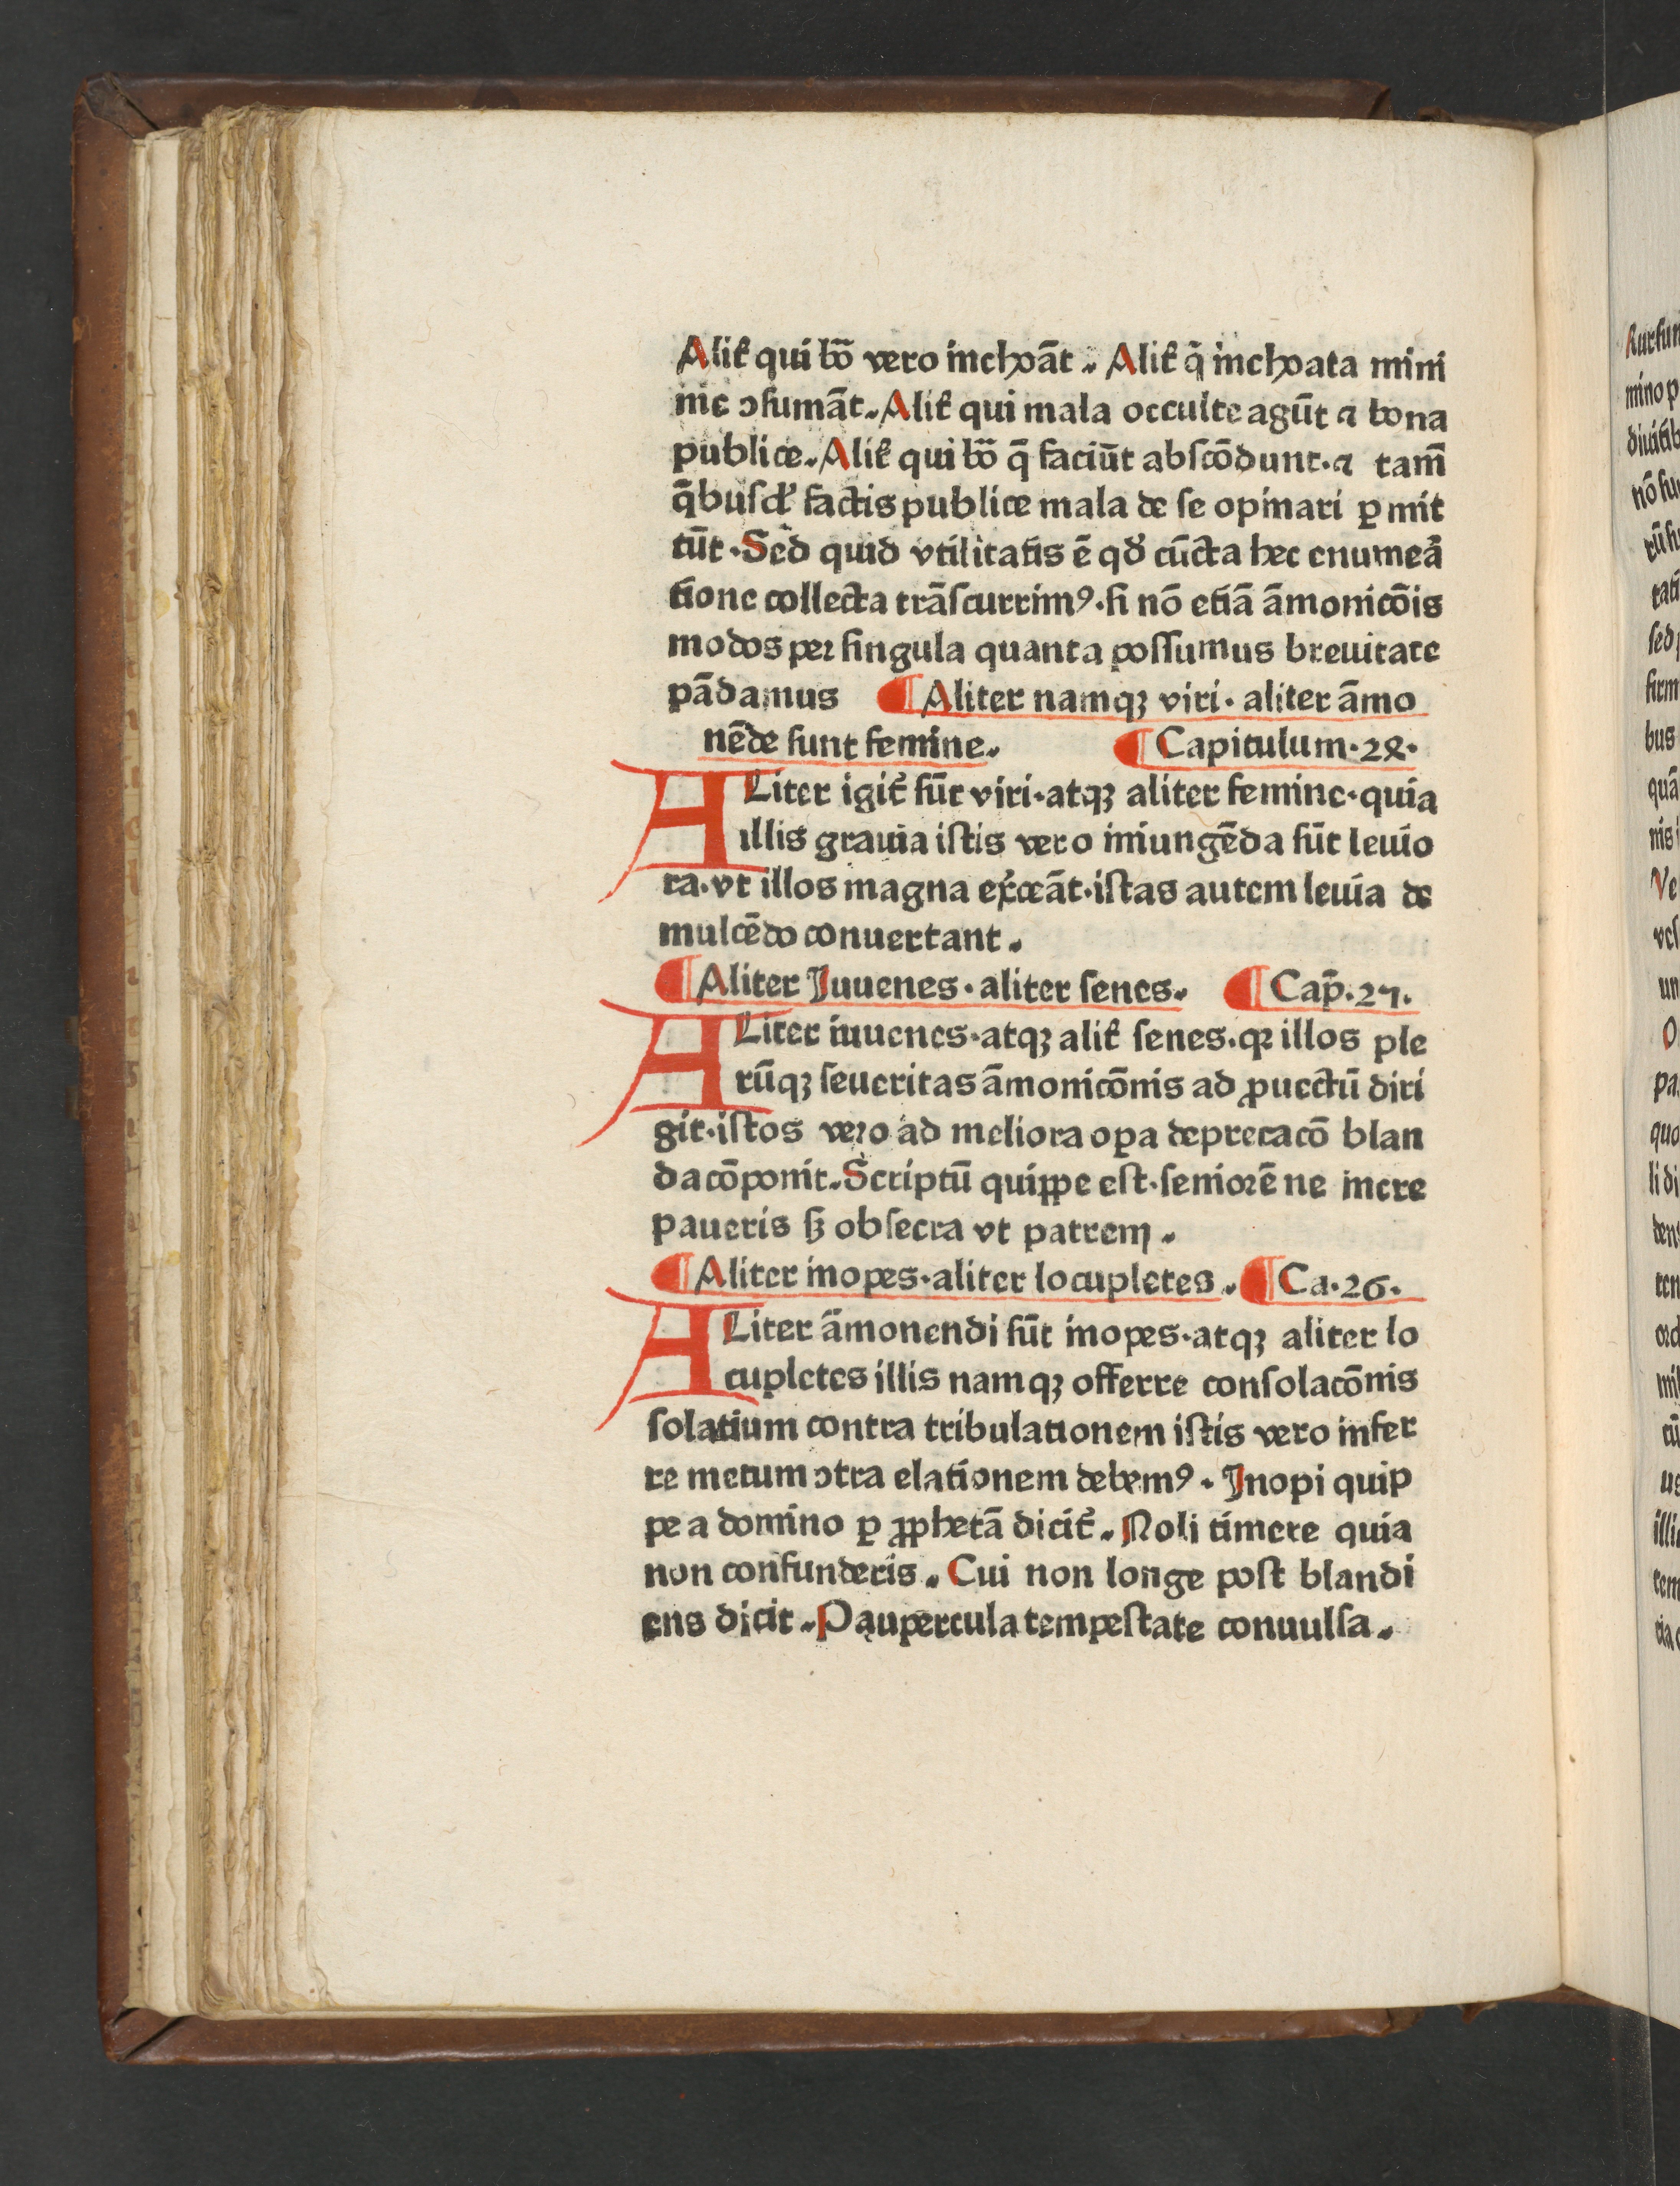 Alit᷑ qui bō vero inchoāt. Alit᷑ q̄ inchoata mini
me ↄsumāt. Alit᷑ qui mala occulte agūt ⁊ bona
publice. Alit᷑ qui bō q̄ faciūt abscōdunt· ⁊ tam̄
q̄busd᷑ factis publice mala de se opinari ꝑmit
tūt· Sed quid vtilitatis ē qd̕ cūcta hec enumeᷓa
tione collecta trāscurrimꝰ· si nō etiā āmonicōis
modos per singula quanta possumus breuitate
pādamus ¶ Aliter namqꝫ viri· aliter āmo
nēde sunt femine. ¶ Capitulum· 28·
ALiter igit᷑ sūt viri· atqꝫ aliter femine· quia
illis grauia istis vero iniungēda sūt leuio
ra· vt illos magna ex̕ceāt· istas autem leuia de
mulcēdo conuertant.
¶ Aliter Juuenes· aliter senes. ¶ Cap̄· 27·
ALiter iuuenes· atqꝫ alit᷑ senes· qꝛ illos ple
rūqꝫ seueritas āmonicōnis ad ꝓuectū diri
git· istos vero ad meliora oꝑa deprecacō blan
da cōponit. Scriptū quippe est· seniorē ne incre
paueris sꝫ obsecra vt patrem.
¶ Aliter inopes· aliter locupletes. ¶ Ca· 26·
ALiter āmonendi sūt inopes· atqꝫ aliter lo
cupletes illis namqꝫ offerre consolacōnis
solatium contra tribulationem istis vero infer
re metum ↄtra elationem debemꝰ· Jnopi quip
pe a domino ꝑ ꝓphetā dicit᷑. Noli timere quia
non confunderis. Cui non longe post blandi
ens dicit. Paupercula tempestate conuulsa.